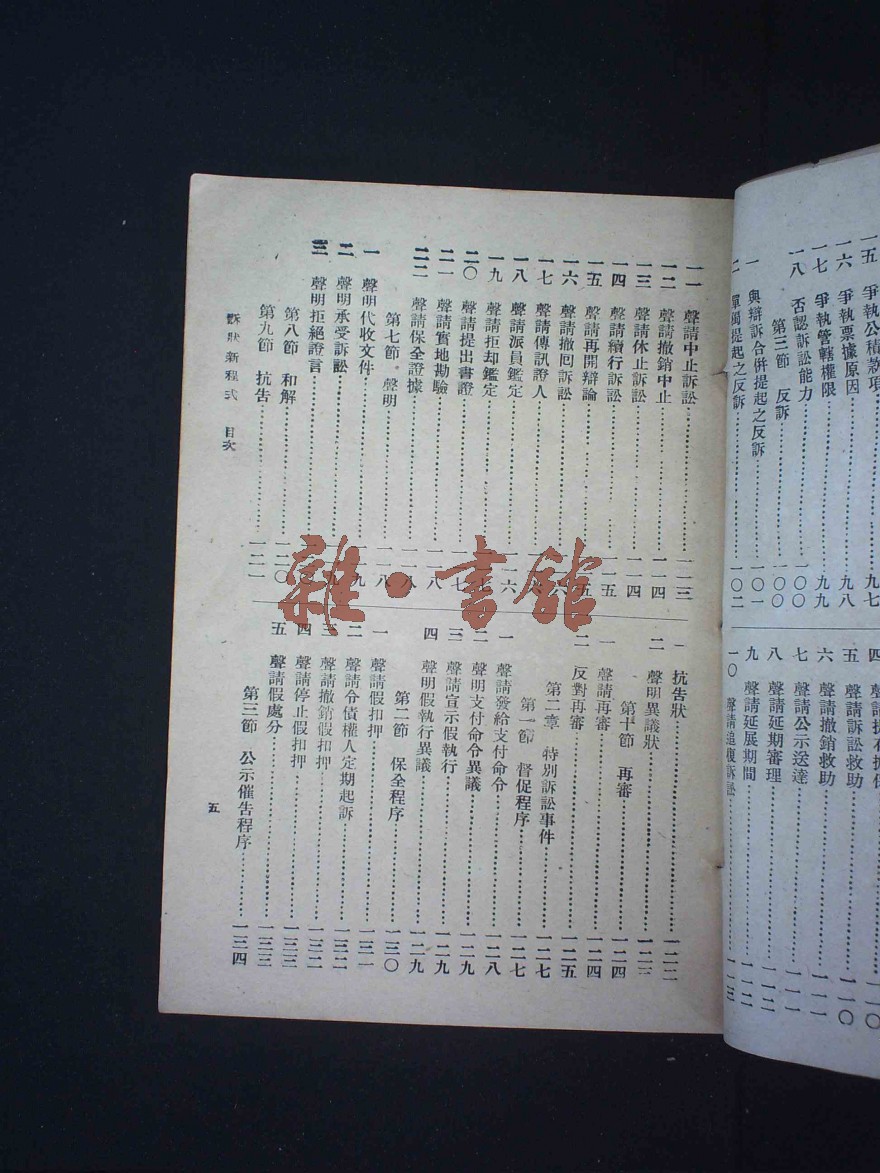 一五 爭執公積款項……九七
一六 爭執票據原因……九八
一七 爭執管轄權限……九九
一八 否認訴訟能力……一〇〇
第三節 反訴……一〇〇
一 與辯訴合併提起之反訴……一〇一
二 單獨提起之反訴……一〇二
四 聲請……一一〇
五 聲請訴訟救助……一一〇
六 聲請撤銷救助……一一一
七 聲請公示送達……一一一
八 聲請延期審理……一一二
九 聲請延展期間……一一二
一〇 聲請追復訴訟……一一三
一一 聲請中止訴訟……一一三
一二 聲請撤銷中止……一一四
一三 聲請休止訴訟……一一四
一四 聲請續行訴訟……一一五
一五 聲請再開辯論……一一五
一六 聲請撤回訴訟……一一六
一七 聲請傳訊證人……一一六
一八 聲請派員鑑定……一一六
一九 聲請拒却鑑定……一一七
二〇 聲請提出書證……一一七
二一 聲請實地勘驗……一一八
二二 聲請保全證據……一一八
第七節 聲明……一一八
一 聲明代收文件……一一九
二 聲明承受訴訟……一一九
三 聲明拒絕證言……
第八節 和解……一二〇
第九節 抗告……一二一
一 抗告狀……一二二
二 聲明異議狀……一二三
第十節 再審……一二四
一 聲請再審……一二四
二 反對再審……一二五
第二章 特別訴訟事件……一二七
第一節 督促程序……一二七
一 聲請發給支付命令……一二八
二 聲明支付命令異議……一二九
三 聲請宣示假執行……一二九
四 聲明假執行異議……一二九
第二節 保全程序……一三〇
一 聲請假扣押……一三一
二 聲請令債權人定期起訴……一三二
三 聲請撤銷假扣押……一三二
四 聲請停止假扣押……一三三
五 聲請假處分……一三三
第三節 公示催告程序……一三四
訴狀新程式 目次
五
雜·書館